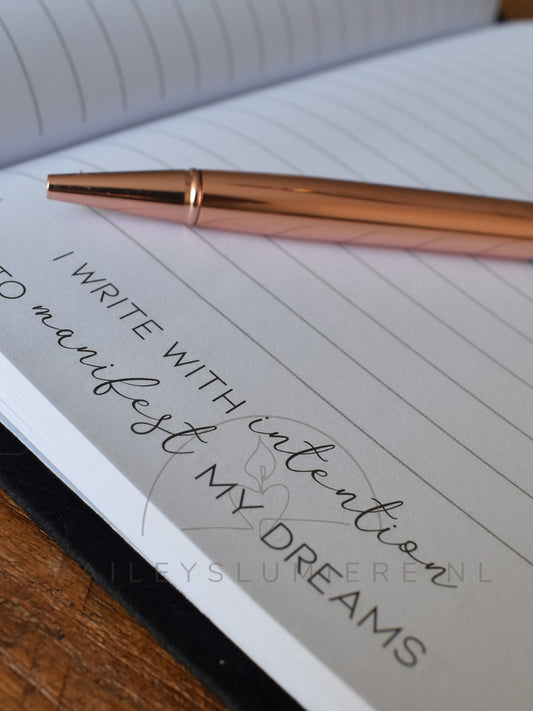 I WRITE WITH intention
TO manifest MY DREAMS
AILEYSLUMIERE.NL